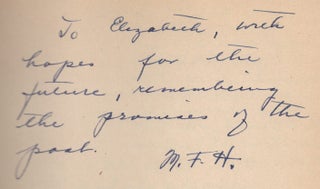 To Elizabeth, with
hopes for the
future, remembeing
the promises of the
past.
M. F. H.